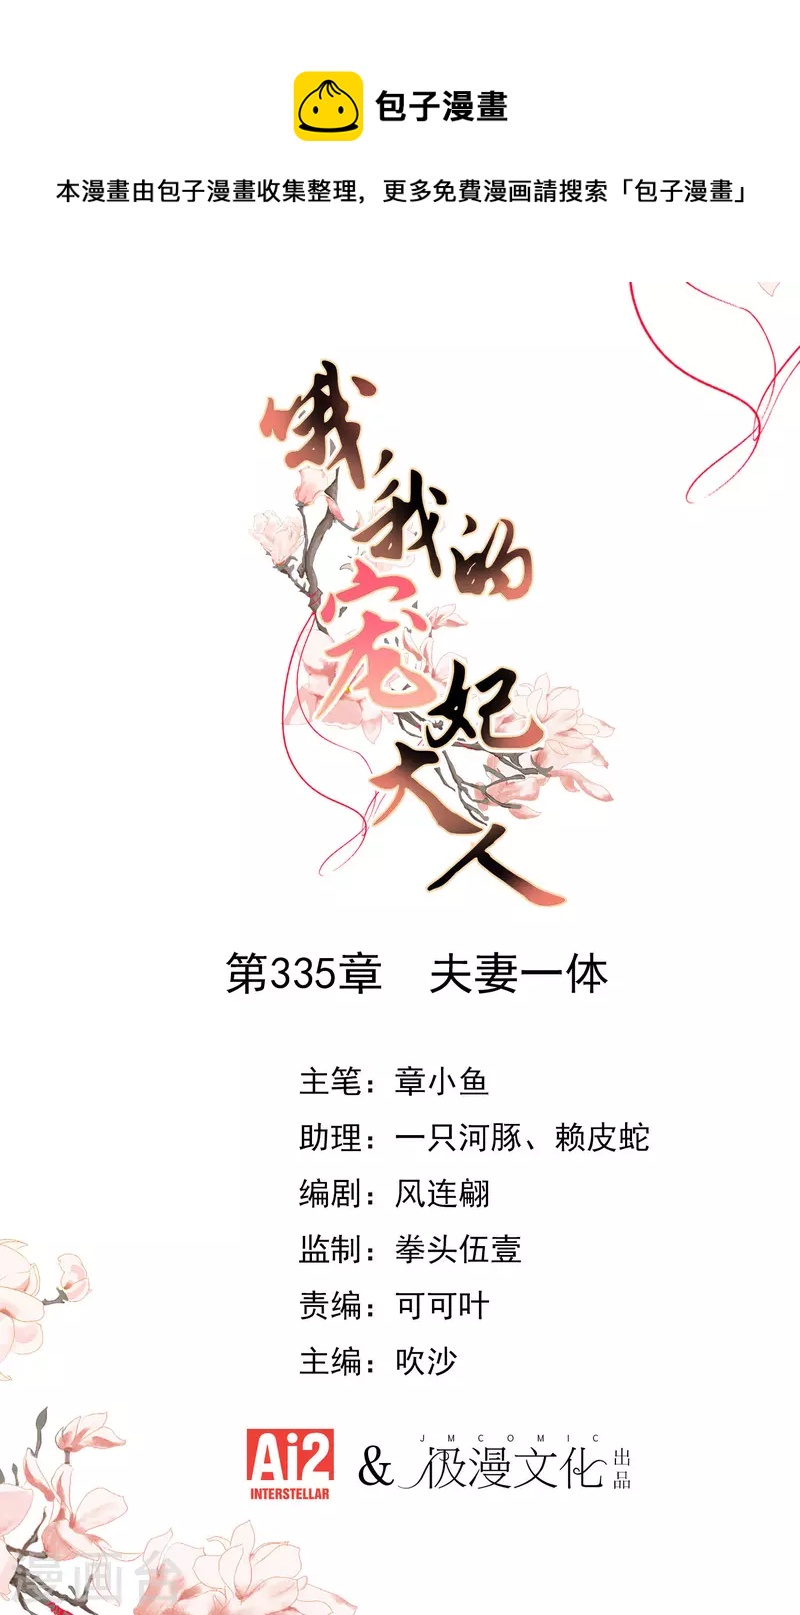 包子漫畫
本漫畫由包子漫畫收集整理，更多免費漫画請搜索「包子漫畫」
哦，我的
宠妃
大人
第335章 夫妻一体
主笔：章小鱼
助理：一只河豚、赖皮蛇
编剧：风连翩
监制：拳头伍壹
责编：可可叶
主编：吹沙
Ai2
INTERSTELLAR
&
JMCOMIC
极漫文化
出品
漫画台